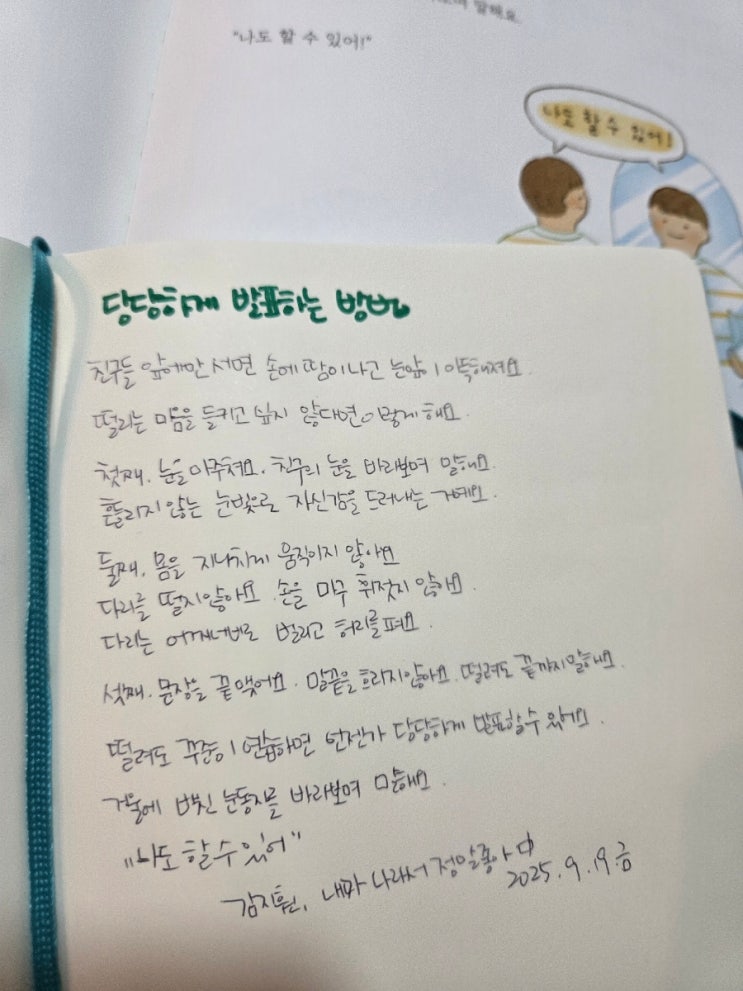 말해요.
"나도 할 수 있어!"
나도 할 수 있어!
당당하게 발표하는 방법
친구들 앞에만 서면 손에 땀이 나고 눈앞이 아득해져요.
떨리는 마음을 들키고 싶지 않다면 이렇게 해요.
첫째. 눈을 마주쳐요. 친구의 눈을 바라보며 말해요.
흔들리지 않는 눈빛으로 자신감을 드러내는 거예요.
둘째. 몸을 지나치게 움직이지 않아요
다리를 떨지 않아요. 손을 마구 휘젓지 않아요.
다리는 어깨너비로 벌리고 허리를 펴요.
셋째. 문장을 끝맺어요. 말끝을 흐리지 않아요. 떨려도 끝까지 말해요.
떨려도 꾸준히 연습하면 언젠가 당당하게 발표할 수 있어요.
거울에 비친 눈동자를 바라보며 말해요.
"나도 할 수 있어"
내가 나라서 정말 좋아
2025. 9. 19. 금